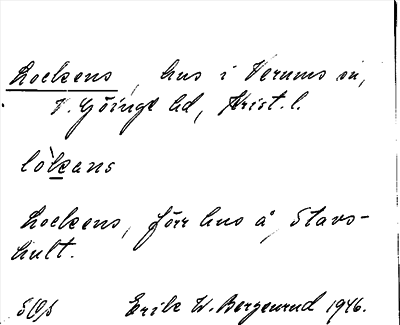 Lockens, hus i Verums sn,
V. Göinge hd, Krist. l.
lòkans
Lockens, förr hus å Stavs-
hult.
SOS Erik W. Bergenrud 1946.